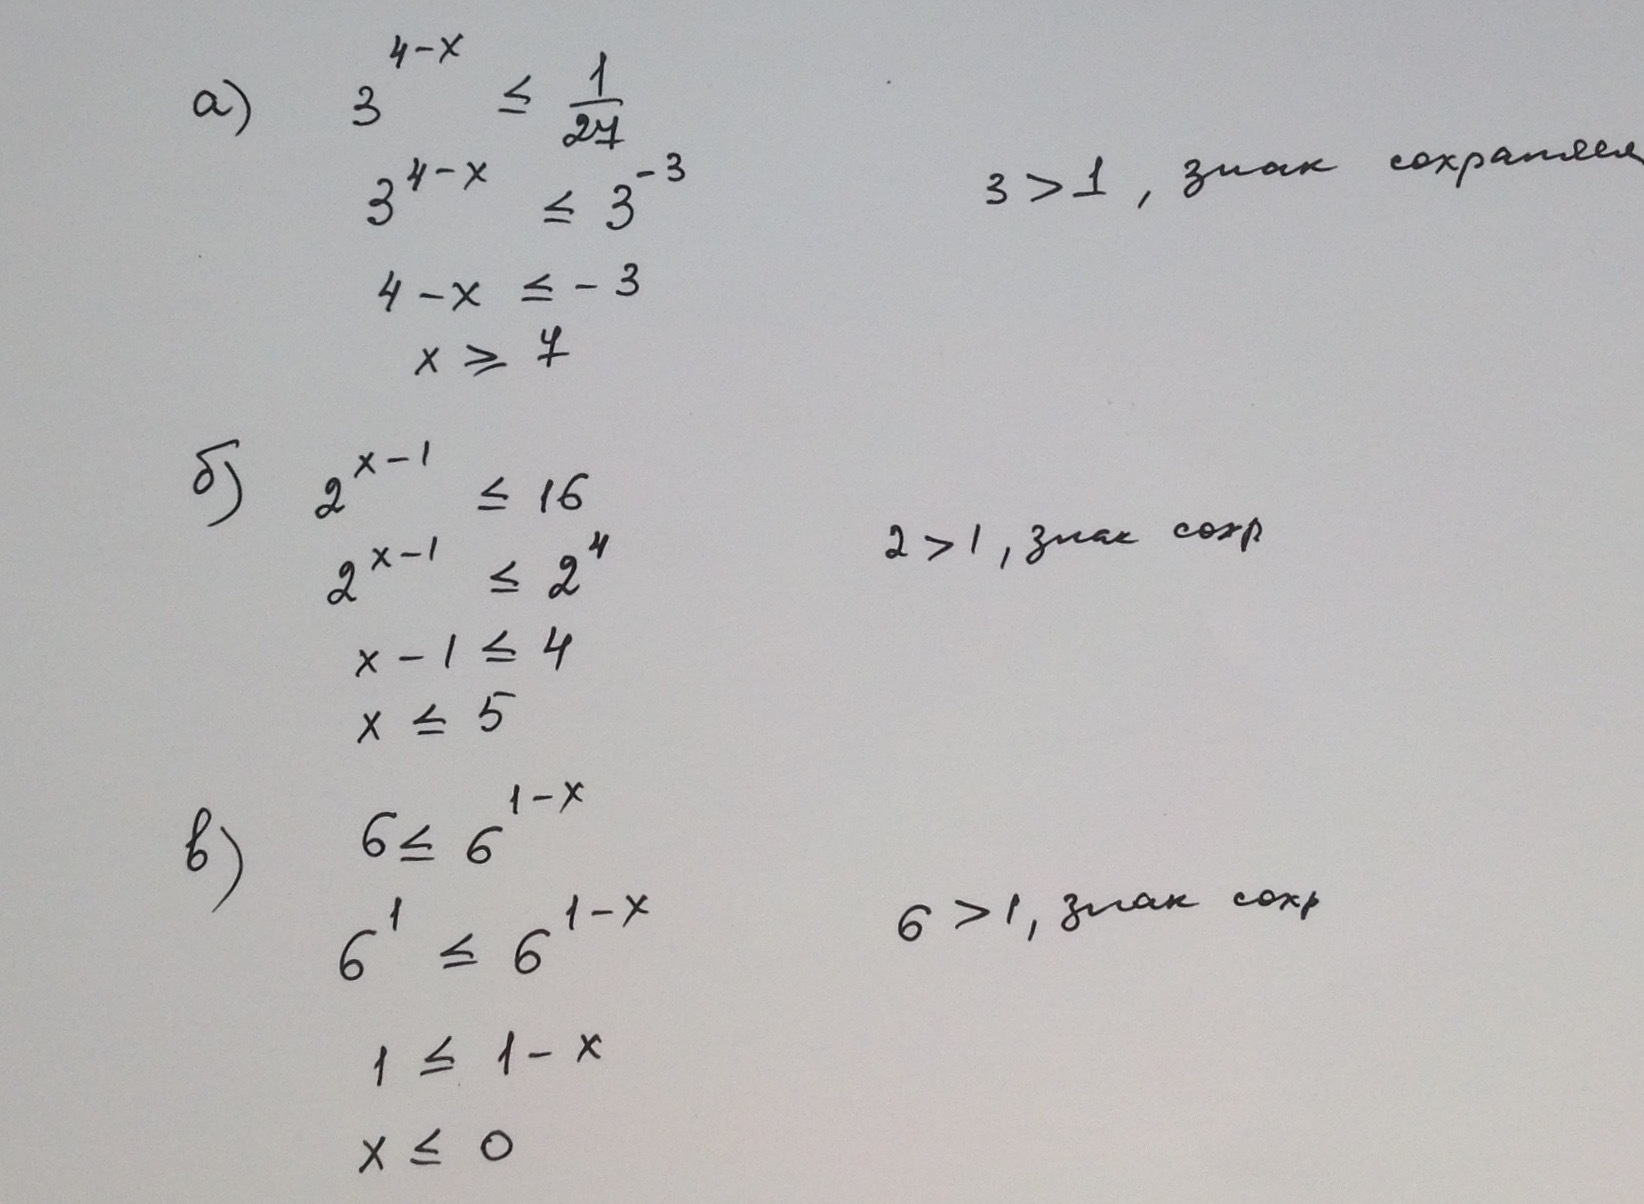 а) 3^{4-x} ≤ 1/27
3^{4-x} ≤ 3^{-3} 3 > 1, знак сохраняется
4 - x ≤ -3
x ≥ 7
б) 2^{x-1} ≤ 16
2^{x-1} ≤ 2^4 2 > 1, знак сохр
x - 1 ≤ 4
x ≤ 5
в) 6 ≤ 6^{1-x}
6^1 ≤ 6^{1-x} 6 > 1, знак сохр
1 ≤ 1 - x
x ≤ 0